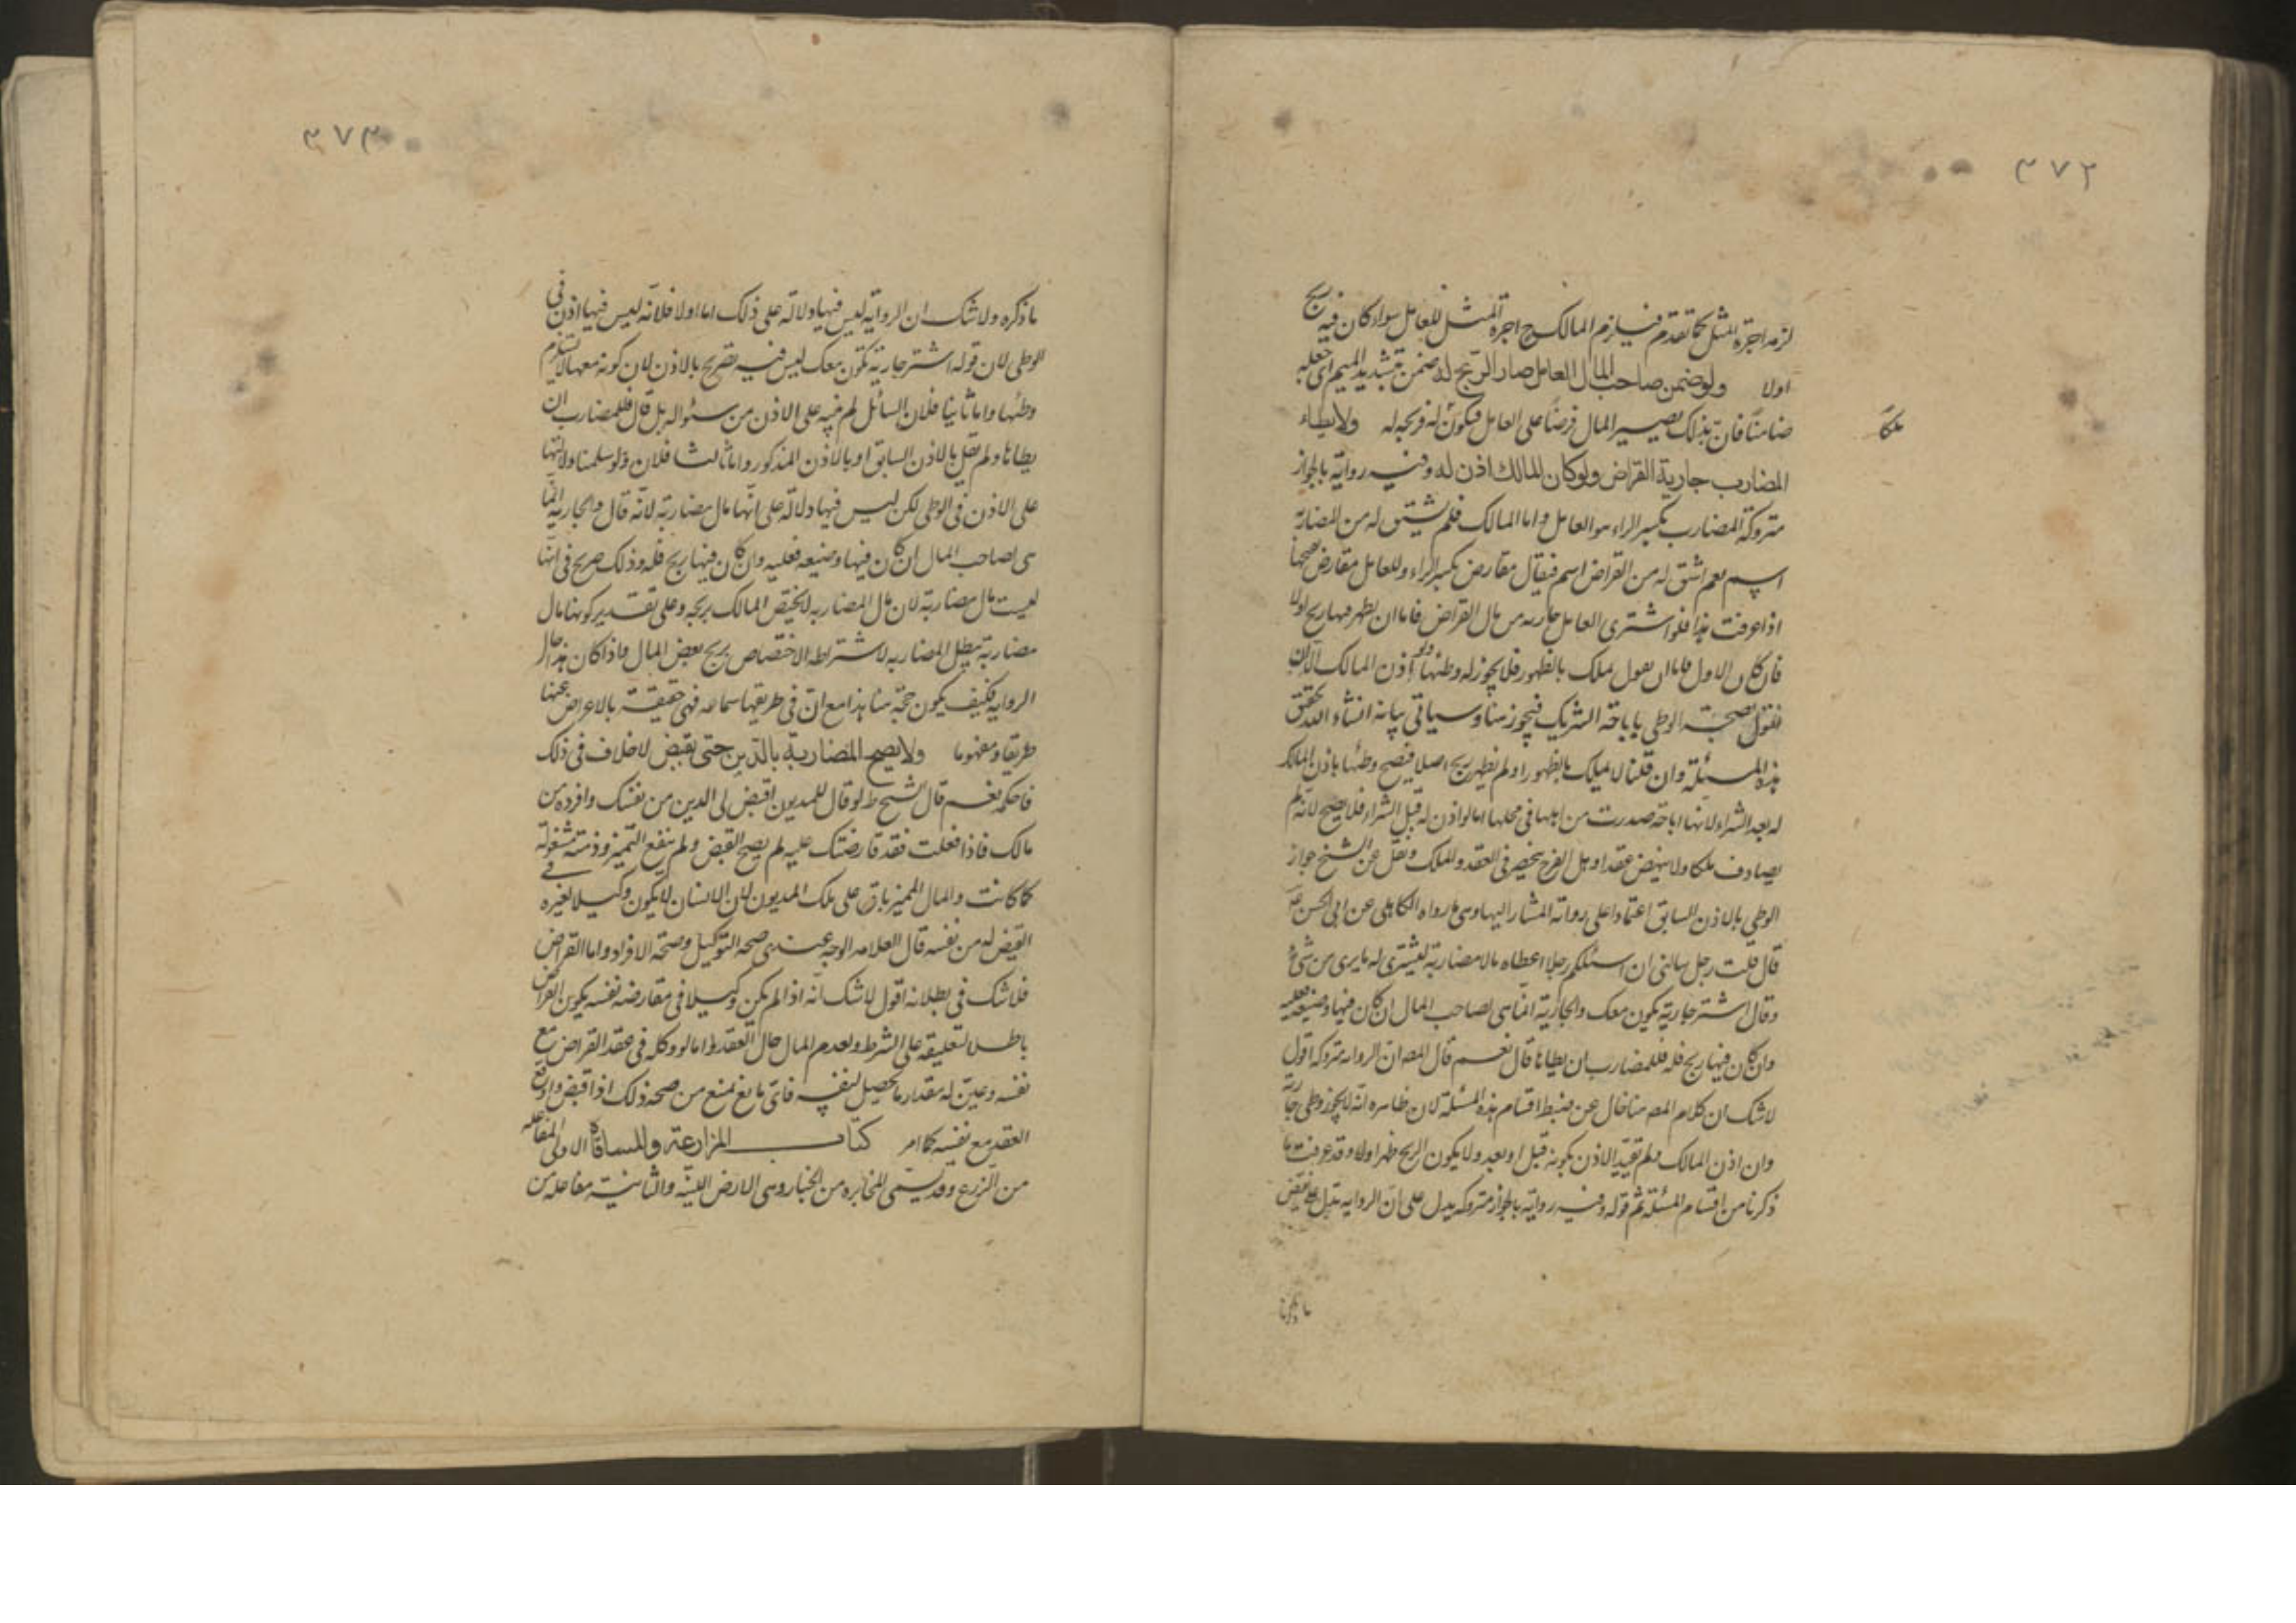 ٣٧٢
لزمه اجرة المثل كما تقدم فيلزم المالك ح اجرة المثل للعامل سواء كان فيه ربح
اولا ولو ضمن صاحب المال العامل صار الربح له ضمن بتشديد الميم اى جعله
ضامنا فان بذلك يصير المال قرضا على العامل فيكون له ربحه له ولا يطاء
ملكا
المضارب جارية القراض ولو كان المالك اذن له وفيه رواية بالجواز
متروكة المضارب بكسر الراء هو العامل واما المالك فلم يشتق له من المضاربة
اسم نعم اشتق له من القراض اسم فيقال مقارض بكسر الراء وللعامل مقارض بفتحها
اذا عرفت هذا فلو اشترى العامل جارية من مال القراض فاما ان يظهر فيها ربح اولا
فان كان الاول فاما ان نقول يملك بالظهور فلا يجوز له وطئها ولو اذن المالك الا ان
نقول بصحة الوطى باباحة الشريك فيجوز هنا وسياتى بيانه انشاء الله تحقق
هذه المسئلة وان قلنا لا يملك بالظهور او لم يظهر ربح اصلا فيصح وطئها باذن المالك
له بعد الشراء لانها اباحة صدرت من اهلها فى محلها اما لو اذن له قبل الشراء فلا يصح لانه لم
يصادف ملكا ولا ينهض عقدا وحل الفرج ينحصر فى العقد والملك ونقل عن الشيخ جواز
الوطى بالاذن السابق اعتمادا على رواية المشار اليها وهى ما رواه الكاهلى عن ابى الحسن ع
قال قلت رجل سالنى ان اسئلكم رجلا اعطاه مالا مضاربة يشترى له ما يرى من شىء
وقال اشتر جارية يكون معك والجارية انما هى لصاحب المال ان كان فيها وضيعة فعليه
وان كان فيها ربح فله فللمضارب ان يطاها قال نعم قال المصـ ان الرواية متروكة اقول
لا شك ان كلام المصـ هنا خال عن ضبط اقسام هذه المسئلة لان ظاهره انه لا يجوز وطى جارية
وان اذن المالك ولم تقيد الاذن بكونه قبل او بعد ولا يكون الربح ظهر اولا وقد عرفت ما
ذكرنا من اقسام المسئلة ثم قوله وفيه رواية بالجواز متروكة يدل على ان الرواية تدل على نقيض
ما ذكره
٣٧٣
ما ذكره ولا شك ان الرواية ليس فيها دلالة على ذلك اما اولا فلانه ليس فيها اذن فى
الوطى لان قوله اشتر جارية تكون معك ليس فيه تصريح بالاذن لان كونه معها لا يستلزم
وطئها واما ثانيا فلان السائل لم ينبه على الاذن من سئواله بل قال فللمضارب ان
يطاها ولم يقل بالاذن السابق او بالاذن المذكور واما ثالثا فلان ولو سلمنا دلالتها
على الاذن فى الوطى لكن ليس فيها دلالة على انها مال مضاربة لانه قال والجارية انما
هى لصاحب المال ان كان فيها وضيعه فعليه وان كان فيها ربح فله وذلك صريح فى انها
ليست مال مضاربة لان مال المضاربه لا يختص المالك بربحه وعلى تقدير كونها مال
مضاربة تبطل المضاربه لاشتراط الاختصاص بربح بعض المال واذا كان هذا حال
الرواية فكيف يكون حجة هنا هذا مع ان فى طريقها سماعه فهى حقيقة بالاعراض عنها
طريقا ومفهوما ولا يصح المضاربة بالدين حتى يقبض لا خلاف فى ذلك
فاحكمه نعم قال الشيخ ط لو قال للمديون اقبض لى الدين من نفسك وافرده من
مالك فاذا فعلت فقد قارضتك عليه لم يصح القبض ولم ينفع التميز وذمته مشغولة
كما كانت والمال المميز باق على ملك المديون لان الانسان لا يكون وكيلا لغيره فى
القبض له من نفسه قال العلامه الوجه عندى صحة التوكيل وصحة الافراد واما القراض
فلا شك فى بطلانه اقول لا شك انه اذا لم يكن وكيلا فى مقارضة نفسه يكون القراض
باطلا لتعليقه على الشرط ولعدم المال حال العقد واما لو وكله فى عقد القراض مع
نفسه وعين له مقدار ما يحصل لنفسه فاى مانع يمنع من صحة ذلك اذا قبض واوقع
العقد مع نفسه كما مر كتاب المزارعة والمساقاة الاولى المفاعله
من الزرع وقد يسمى المخابره من الخبار وهى الارض اللينة والثانية مفاعله من